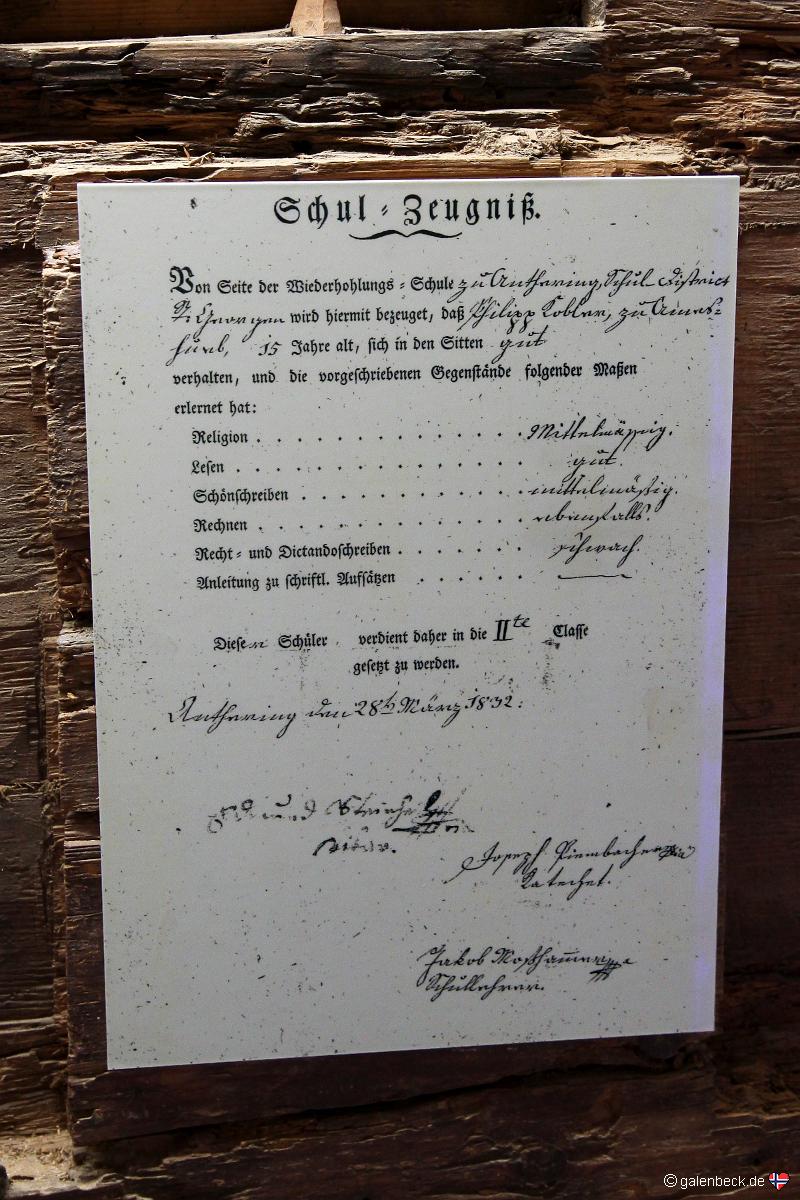 Schul-Zeugniß.
Von Seite der Wiederhohlungs-Schule zu Anthering, Schul-District
St. Georgen wird hiermit bezeuget, daß Philipp Kobler, zu
15 Jahre alt, sich in den Sitten gut
verhalten, und die vorgeschriebenen Gegenstände folgender Maßen
erlernet hat:
Religion . . . . . . . . . . . . . Mittelmässig.
Lesen . . . . . . . . . . . . . . gut.
Schönschreiben . . . . . . . . . . mittelmäßig.
Rechnen . . . . . . . . . . . . . ebenfalls.
Recht- und Dictandoschreiben . . . . . . schwach.
Anleitung zu schriftl. Aufsätzen . . . . . . —
Dieser Schüler verdient daher in die IIte Classe
gesetzt zu werden.
Anthering den 28t März 1832.
Joseph
Katechet.
Jakob Moßhammer
Schullehrer.
© galenbeck.de